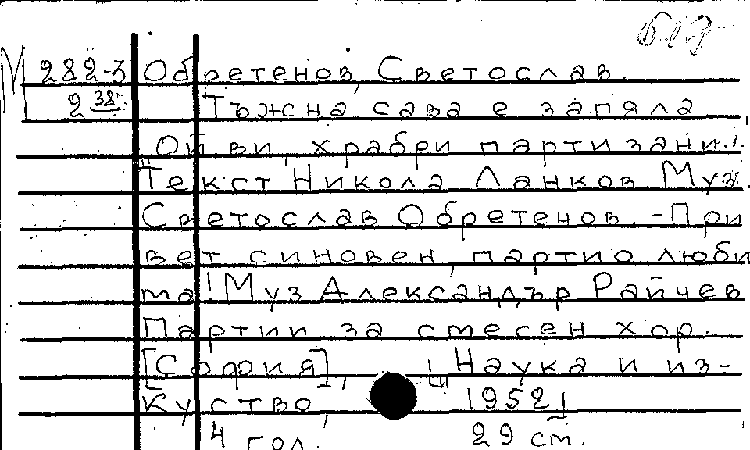 M 282-3 Обретенов, Светослав.
2 38 Тъжна сава е запяла
„Ой ви, храбри партизани..!
Текст Никола Ланков Муз.
Светослав Обретенов. - При
вет синовен, партио люби
ма! Муз Александър Райчев
Партии за смесен хор.
[София], Наука и из-
куство, 1952]
4 гол. 29 см.